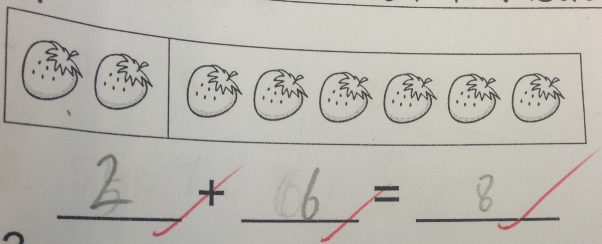 2 + 6 = 8